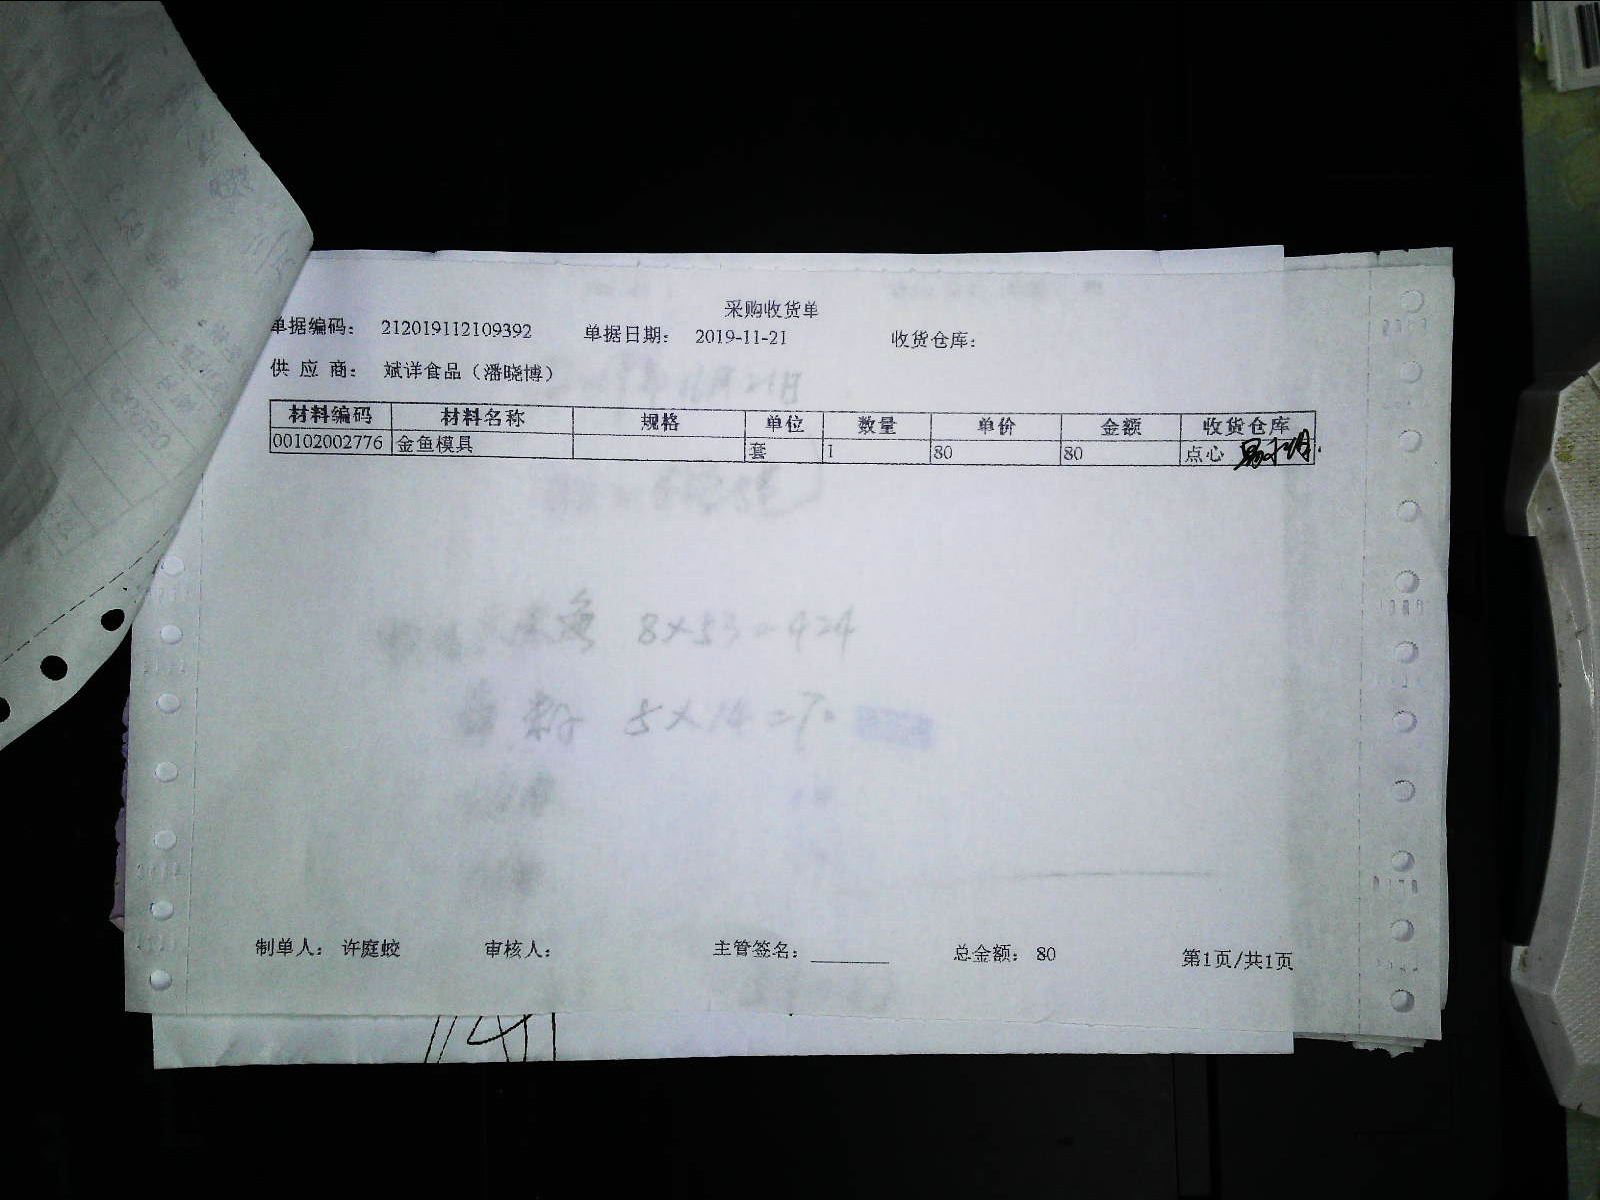 采购收货单
单据编码： 212019112109392 单据日期： 2019-11-21 收货仓库：
供 应 商： 斌详食品（潘晓博）
材料编码 材料名称 规格 单位 数量 单价 金额 收货仓库
00102002776 金鱼模具 套 1 80 80 点心
8×53=424
5×14=70
制单人： 许庭蛟 审核人： 主管签名： 总金额： 80 第1页/共1页